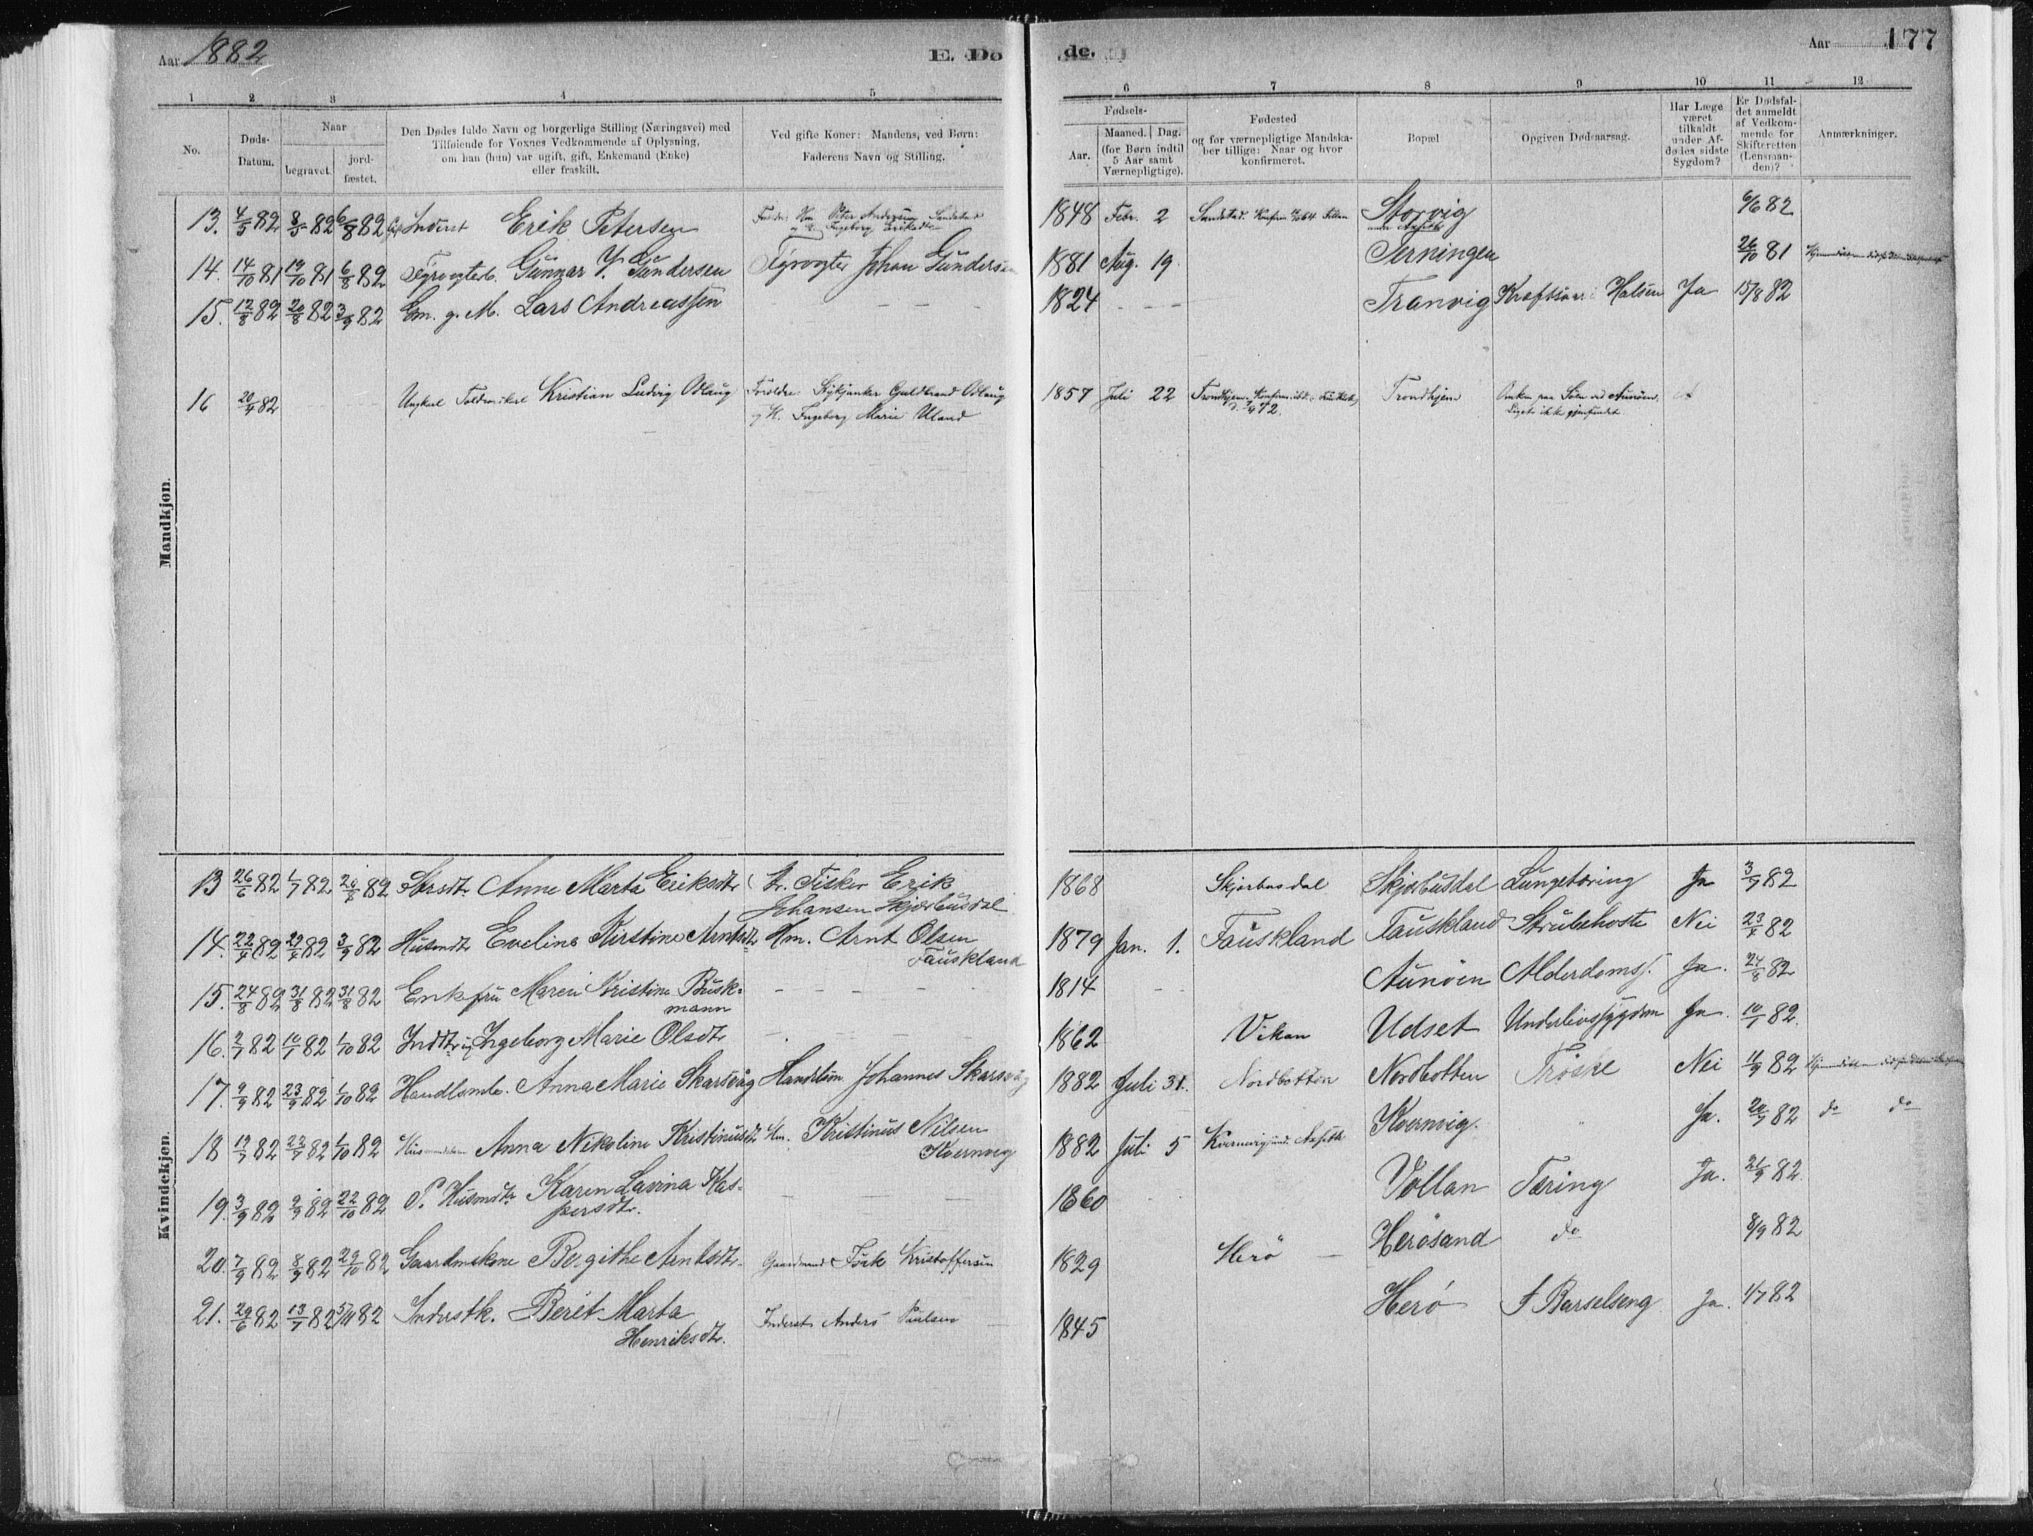 Aar 1882 E. Dø de. Aar 177
1 2 3 4 5 6 7 8 9 10 11 12
No.
Døds-Datum.
Naar
begravet.
jord-fæstet.
Den Dødes fulde Navn og borgerlige Stilling (Næringsvei) med
Tilføiende for Voxnes Vedkommende af Oplysning,
om han (hun) var ugift, gift, Enkemand (Enke)
eller fraskilt.
Ved gifte Koner: Mandens, ved Børn:
Faderens Navn og Stilling.
Fødsels-
Aar.
Maaned. Dag.
(for Børn indtil
5 Aar samt
Værnepligtige).
Fødested
og for værnepligtige Mandska-
ber tillige: Naar og hvor
konfirmeret.
Bopæl
Opgiven Dødsaarsag.
Har Læge
været
tilkaldt
under Af-
dødes sidste
Sygdom?
Er Dødsfal-
det anmeldt
af Vedkom-
mende for
Skifteretten
(Lensman-
den)?
Anmærkninger.
Mandkjøn.
13. 4/5 82 8/5 82 6/8 82 Inderst Erik Petersen 1848 Febr. 2 Storvig 6/6 82
14. 14/10 81 19/10 81 6/8 82 Fyrvogters. Gunnar Y. Gundersen Fyrvogter Johan Gundersen 1881 Aug. 19 Terningen 26/10 81
15. 12/8 82 20/8 82 3/9 82 Gm. g. M. Lars Andreassen - - - 1824 - - Tranvig Kræftsaar i Halsen Ja 15/8 82
16 20/4 82 Ungkarl Kristian Ludvig Odlaug Forældre: Guldbrand Odlaug
og H. Ingeborg Marie Uland
1857 Juli 22 Trondhjem Trondhjem Omkom paa Søen ved Aunøen.
Liget ikke gjenfundet
Kvindekjøn.
13 26/6 82 1/7 82 20/8 82 Anne Marta Eriksdtr Fisker Erik
Johansen Skjærbusdal
1868 Skjærbusdal Skjærbusdal Lungetæring Ja 3/7 82
14. 22/4 82 29/4 82 3/9 82 Husmdtr Eveline Kirstine Arntsdtr Hm. Arnt Olsen
Fauskland
1879 Jan. 1. Fauskland Fauskland Strubehoste Nei 23/4 82
15. 24/8 82 31/8 82 31/8 82 Enkefru Maren Kristine Busk-
mann
- - - - 1814 - - Aunøen Alderdomss. Ja. 24/8 82
16. 2/7 82 10/7 82 1/10 82 Ingeborg Marie Olsdtr 1862 Vikan Udset Underlivssygdom Ja. 10/7 82
17. 9/9 82 23/9 82 1/10 82 Anna Marie Skarsvåg Johannes Skarsvåg 1882 Juli 31. Nordbotten Nordbotten Trøske Nei 11/9 82
18 19/7 82 23/7 82 1/10 82 Anna Nikoline Kristinusdtr Hm. Kristinus Nilsen
Kvernvig
1882 Juli 5 Kvernvig Ja. 20/7 82 do do
19. 3/9 82 9/9 82 22/10 82 Husmdtr Karen Lavina Kas-
persdtr.
- - - 1860 Vollan Tæring Ja. 21/9 82
20. 7/9 82 8/9 82 29/10 82 Gaardmskone Bergithe Arntsdtr. Gaardmand Kristoffersen 1829 Herø Herøsand do 8/9 82
21. 29/6 82 13/7 82 5/11 82 Inderstk. Berit Marta
Henriksdtr.
Inderst Anders Paulsen
1845 Herø Barselseng Ja. 4/7 82